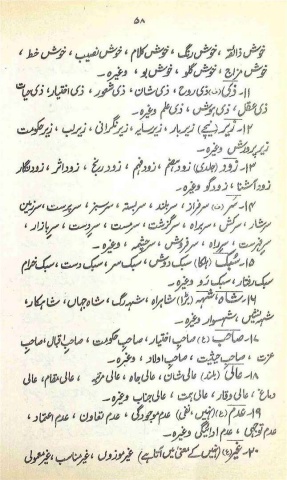 ۵۸
خوش ذائقہ ، خوش رنگ ، خوش کلام ، خوش نصیب ، خوش خط ،
خوش مزاج ، خوش گلو ، خوش بو ، وغیرہ ۔
۱۱۔ ذی روح ، ذی شان ، ذی شعور ، ذی اختیار ، ذی حیات
ذی عقل ، ذی ہوش ، ذی علم وغیرہ ۔
۱۲۔ زیر (نیچے) زیر بار ، زیر سایہ ، زیر نگرانی ، زیر لب ، زیر حکومت
زیر پرورش وغیرہ ۔
۱۳۔ زود (جلدی) زود ہضم ، زود فہم ، زود رنج ، زود اثر ، زود نگار
زود آشنا ، زود گو وغیرہ ۔
۱۴۔ سر سرفراز ، سربلند ، سربستہ ، سرسبز ، سرپرست ، سرزمین
سرشار ، سرکش ، سربراہ ، سرگزشت ، سرمست ، سردست ، سربازار ،
سرفہرست ، سرراہ ، سرفروش ، سرچشمہ ، وغیرہ ۔
۱۵۔ سبک (ہلکا) سبک دوش ، سبک سر ، سبک دست ، سبک خرام
سبک رفتار ، سبک رو وغیرہ ۔
۱۶۔ شاہ ، شہہ (بڑا) شاہراہ ، شہہ رگ ، شاہ جہاں ، شاہکار ،
شہہ نشیں ، شہہ سوار وغیرہ ۔
۱۷۔ صاحب (ع) صاحب اختیار ، صاحب حکومت ، صاحب اقبال ، صاحب
عزت ، صاحب حیثیت ، صاحب اولاد ، وغیرہ ۔
۱۸۔ عالی (بلند) عالی شان ، عالی جاہ ، عالی مرتبہ ، عالی مقام ، عالی
دماغ ، عالی وقار ، عالی ہمت ، عالی جناب وغیرہ ۔
۱۹۔ عدم (ع) (نہیں ، نفی) عدم موجودگی ، عدم تعاون ، عدم اعتماد ،
عدم توجہی ، عدم ادائیگی وغیرہ ۔
۲۰۔ غیر (ع) (نہیں کے معنی میں آتا ہے) غیر موزوں ، غیر مناسب ، غیر معمولی